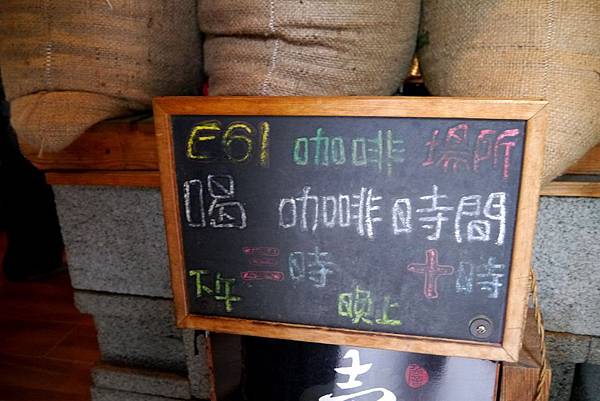 E61 咖啡 場所
喝 咖啡時間
下午 三時 十時
晚上